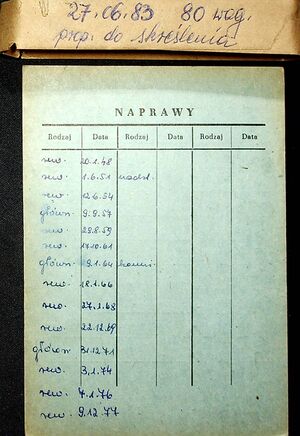 27.06.83 80 wag.
prop. do skreślenia
NAPRAWY
Rodzaj Data Rodzaj Data Rodzaj Data
rew. 20.1.48
rew. 1.6.51 nadzl.
rew. 12.6.54
główn. 9.9.57
rew. 28.8.59
rew. 17.10.61
główn. 9.1.64
rew. 18.1.66
rew. 27.1.68
rew. 22.12.69
główn 31.12.71
rew. 3.1.74
rew. 7.1.76
rew. 9.12.77